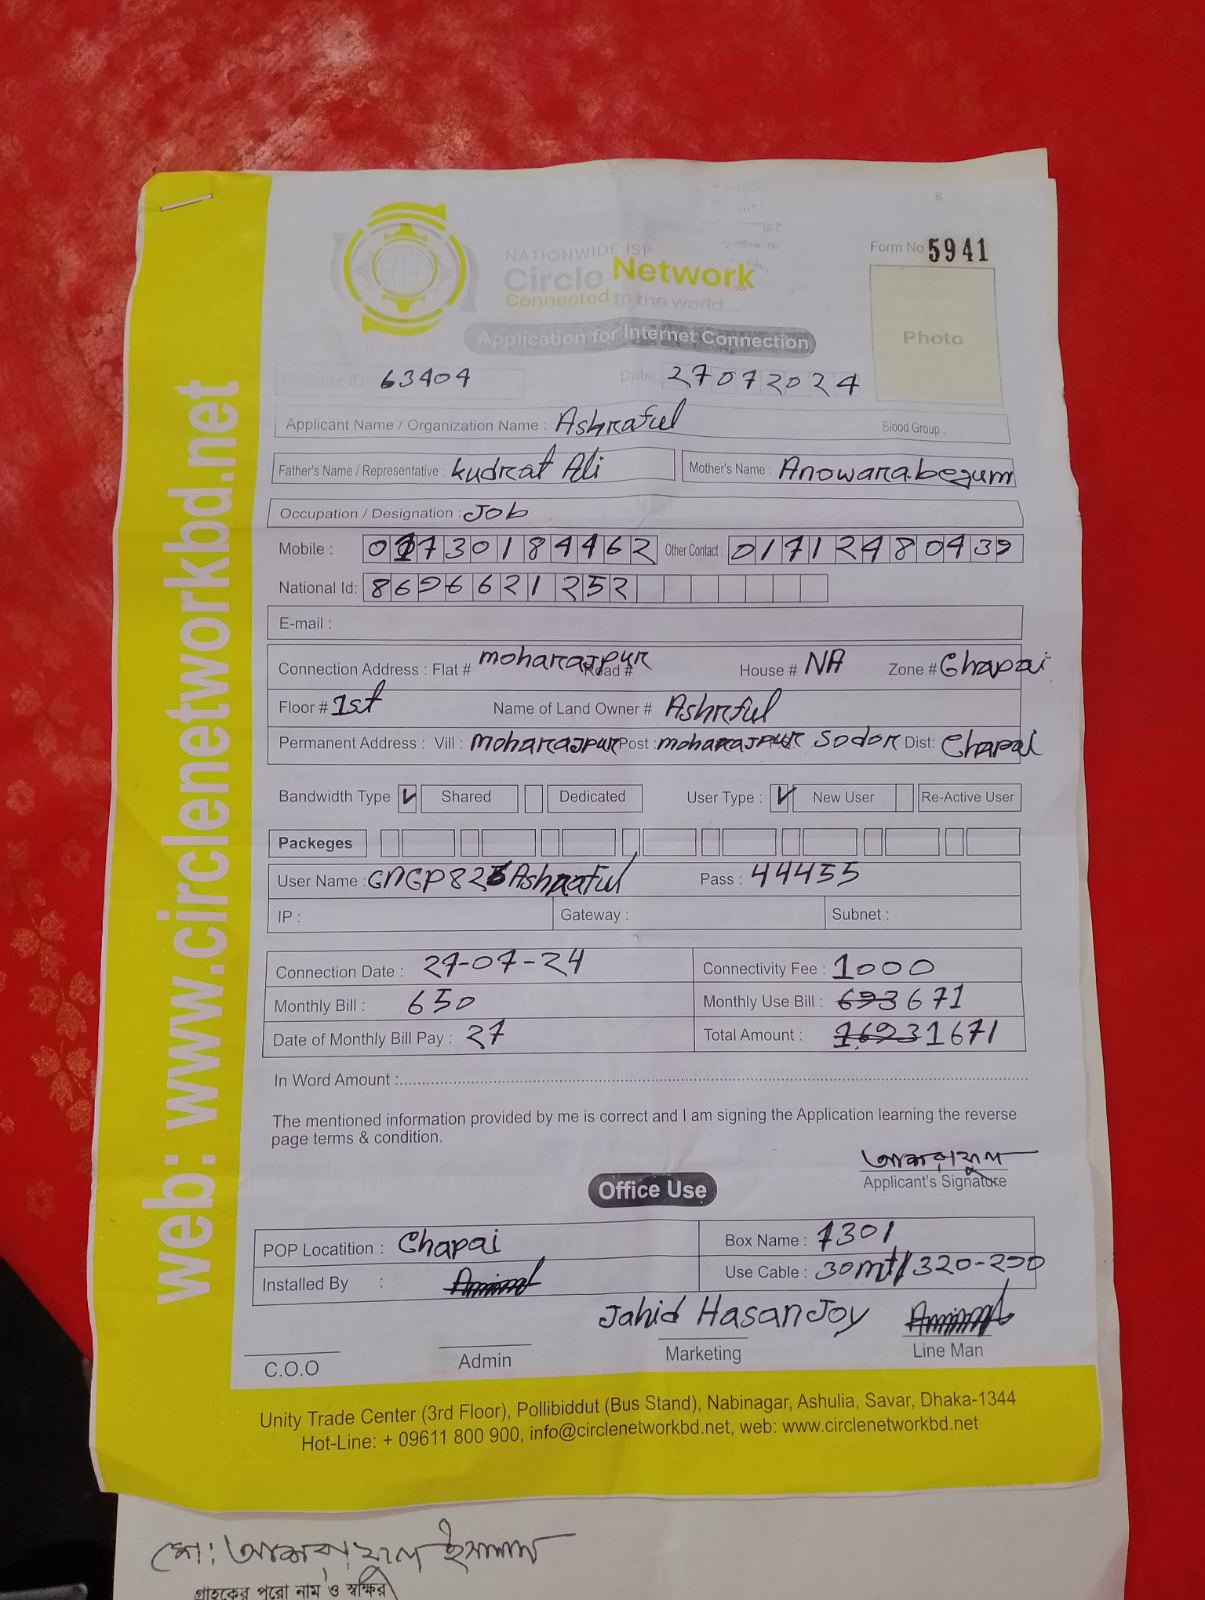 Form No 5941
NATIONWIDE ISP
Circle Network
Connected to the world
Photo
Application for Internet Connection
Cutomer ID: 63404 Date: 27072024
Applicant Name / Organization Name : Ashraful Blood Group :
Father's Name / Representative : kudrat Ali Mother's Name : Anowara.begum
Occupation / Designation : Job
Mobile : 01730184462 Other Contact : 01712480439
National Id: 8696621252
E-mail :
Connection Address : Flat # moharajpur Road # House # NA Zone # Chapai
Floor # 1st Name of Land Owner # Ashrful
Permanent Address : Vill : moharajpur Post : moharajpur Sodor Dist: Chapai
Bandwidth Type Shared Dedicated User Type : New User Re-Active User
Packeges
User Name : Ashraful Pass : 44455
IP : Gateway : Subnet :
Connection Date : 27-07-24 Connectivity Fee : 1000
Monthly Bill : 650 Monthly Use Bill : 693 671
Date of Monthly Bill Pay : 27 Total Amount : 1693 1671
In Word Amount :
The mentioned information provided by me is correct and I am signing the Application learning the reverse
page terms & condition.
আশরাফুল
Applicant's Signature
Office Use
POP Locatition : Chapai Box Name : 1301
Installed By : Use Cable : 30mt/320-290
Jahid Hasan Joy
C.O.O Admin Marketing Line Man
Unity Trade Center (3rd Floor), Pollibiddut (Bus Stand), Nabinagar, Ashulia, Savar, Dhaka-1344
Hot-Line: + 09611 800 900, info@circlenetworkbd.net, web: www.circlenetworkbd.net
web: www.circlenetworkbd.net
মো: আশরাফুল ইসলাম
গ্রাহকের পুরো নাম ও স্বাক্ষর